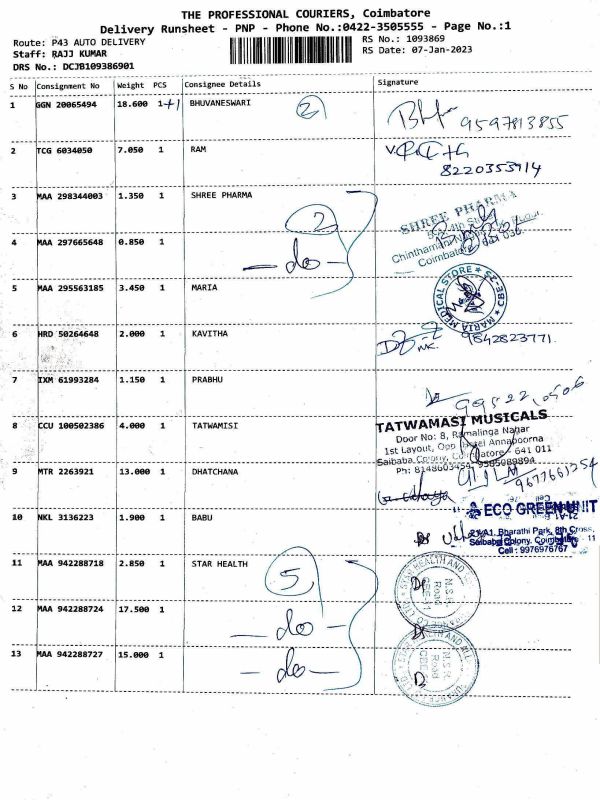 THE PROFESSIONAL COURIERS, Coimbatore
Delivery Runsheet - PNP - Phone No.:0422-3505555 - Page No.:1
Route: P43 AUTO DELIVERY
RS No.: 1093869
Staff: RAJJ KUMAR
RS Date: 07-Jan-2023
DRS No.: DCJB109386901
S No Consignment No Weight PCS Consignee Details Signature
1 GGN 20065494 18.600 1+1 BHUVANESWARI 2
9597813855
2 TCG 6034050 7.050 1 RAM
8220353914
3 MAA 298344003 1.350 1 SHREE PHARMA
2
SHREE PHARMA
Chinthamani Nagar
Coimbatore - 641 038
4 MAA 297665648 0.850 1 -do-
5 MAA 295563185 3.450 1 MARIA
MARIA MEDICAL STORE CBE-25
6 HRD 50264648 2.000 1 KAVITHA
9842823771
7 IXM 61993284 1.150 1 PRABHU
8 CCU 100502386 4.000 1 TATWAMISI
TATWAMASI MUSICALS
Door No: 8, Ramalinga Nagar
1st Layout, Opp Hotel Annapoorna
Saibaba Colony, Coimbatore - 641 011
Ph: 8148603454, 9585089894
9 MTR 2263921 13.000 1 DHATCHANA
9677661254
10 NKL 3136223 1.900 1 BABU
ECO GREEN UNIT
21/A1, Bharathi Park, 8th Cross,
Saibaba Colony, Coimbatore - 11
Cell : 9976976767
11 MAA 942288718 2.850 1 STAR HEALTH
5
STAR HEALTH AND ALL
N.S.R. Road
12 MAA 942288724 17.500 1 -do-
13 MAA 942288727 15.000 1 -do-
HEALTH AND ALL
N.S.R. Road
CBE